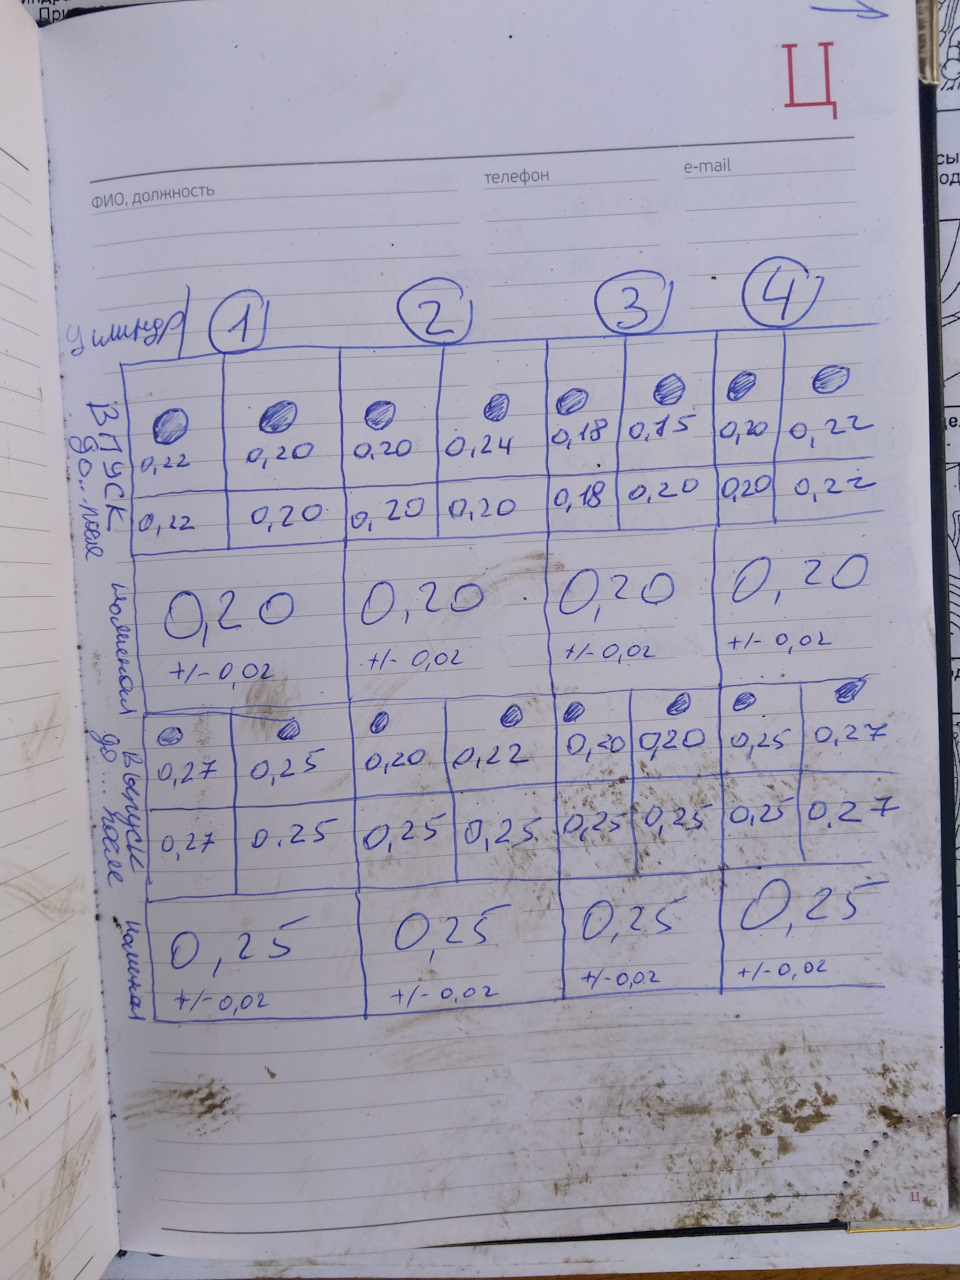 Ц
ФИО, должность телефон e-mail
Цилиндр 1 2 3 4
ВПУСК
до... после
0,22 0,20 0,20 0,24 0,18 0,15 0,20 0,22
0,22 0,20 0,20 0,20 0,18 0,20 0,20 0,22
номинал
0,20 0,20 0,20 0,20
+/- 0,02 +/- 0,02 +/- 0,02 +/- 0,02
Выпуск
до... после
0,27 0,25 0,20 0,22 0,20 0,20 0,25 0,27
0,27 0.25 0,25 0,25 0,25 0,25 0,25 0,27
номинал
0,25 0,25 0,25 0,25
+/- 0,02 +/- 0,02 +/- 0,02 +/- 0,02
Ц